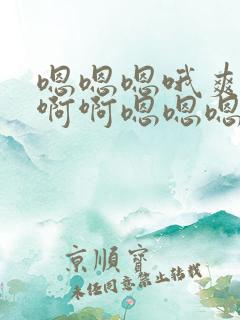 嗯嗯嗯哦爽
啊啊嗯嗯嗯
京順寶
未经同意禁止转载